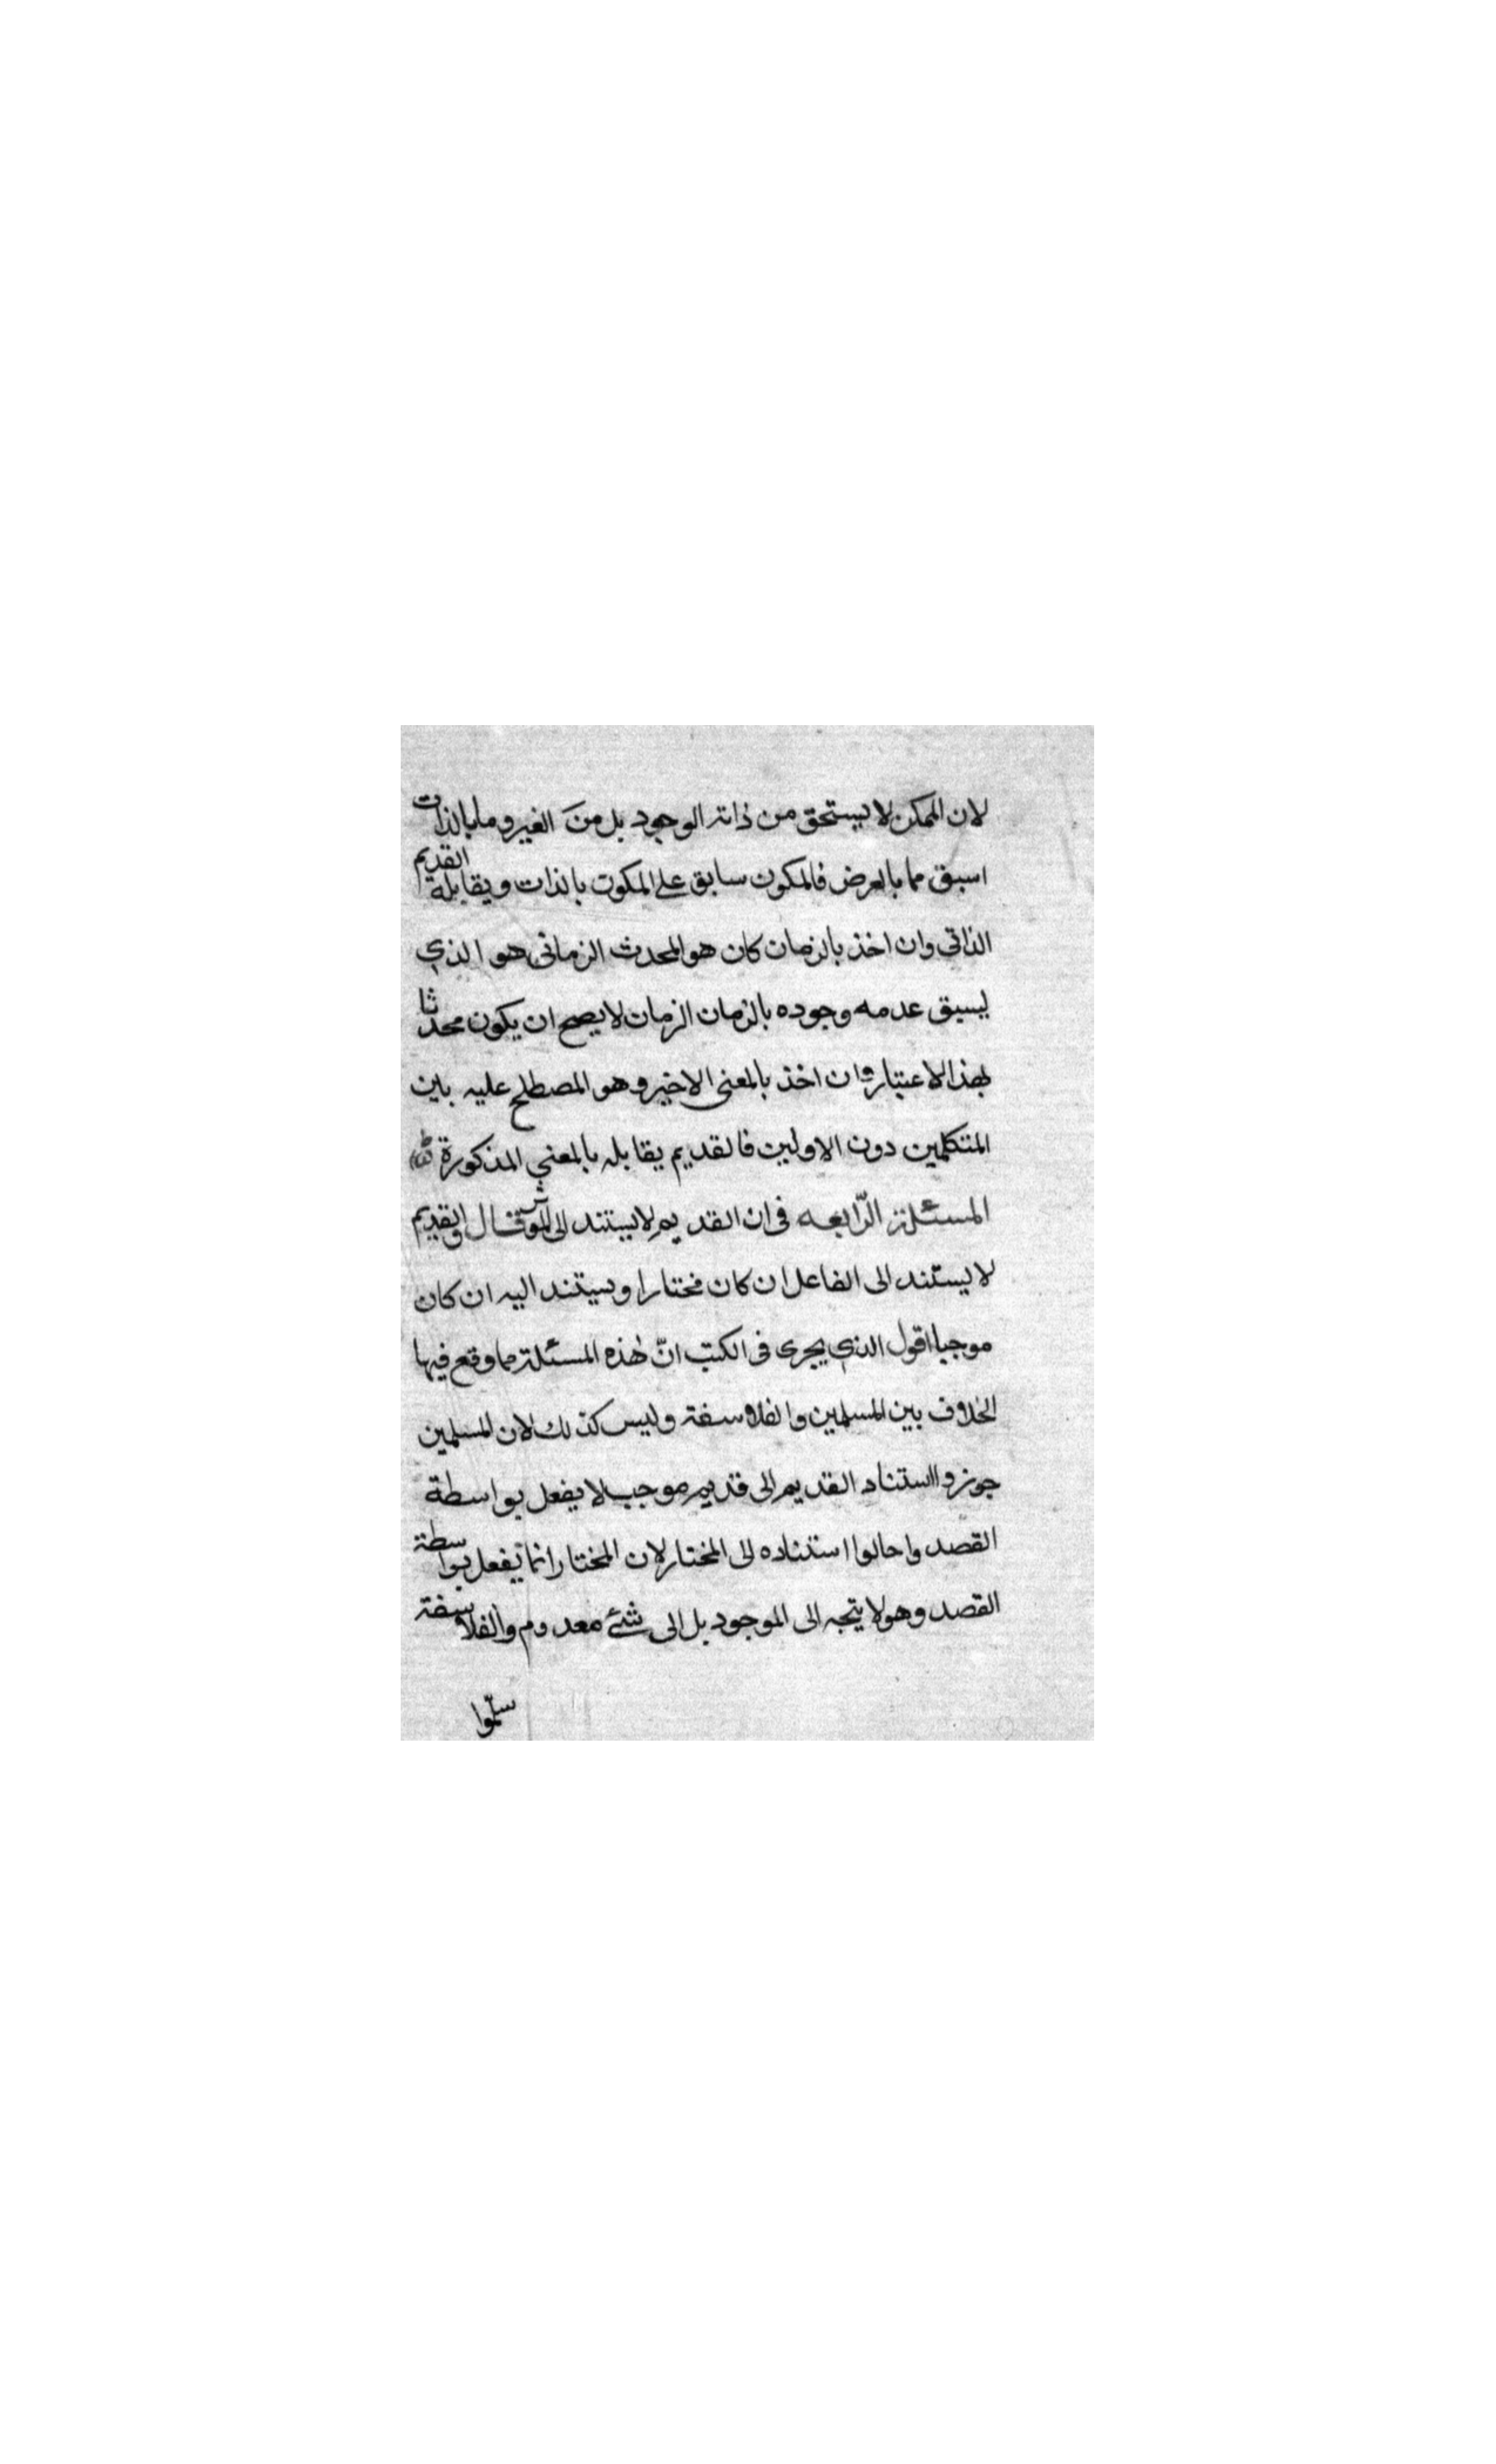 لان الممكن لا يستحق من ذاته الوجود بل من الغير وما بالذات
اسبق مما بالعرض فالمكون سابق على المكون بالذات ويقابله القديم
الذاتى وان اخذ بالزمان كان هو المحدث الزمانى هو الذي
يسبق عدمه وجوده بالزمان الزمان لا يصح ان يكون محدثا
بهذا الاعتبار وان اخذ بالمعنى الاخير وهو المصطلح عليه بين
المتكلمين دون الاولين فالقديم يقابله بالمعنى المذكورة
المسئلة الرّابعه فى ان القديم لا يستند الى المؤثر قال والقديم
لا يستند الى الفاعل ان كان مختارا ويستند اليه ان كان
موجبا اقول الذي يجرى فى الكتب انّ هذه المسئلة مما وقع فيها
الخلاف بين المسلمين والفلاسفة وليس كذلك لان المسلمين
جوزوا استناد القديم الى قديم موجب لا يفعل بواسطة
القصد واحالوا استناده الى المختار لان المختار انما يفعل بواسطة
القصد وهو لا يتجه الى الموجود بل الى شئ معدوم والفلاسفة
سلّموا